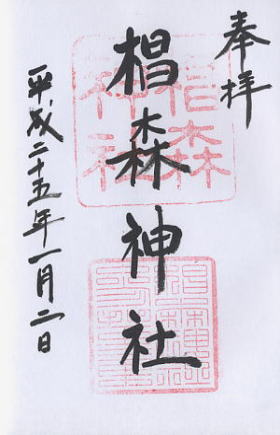 奉拝
椙森神社
平成二十五年一月二日
椙森神社